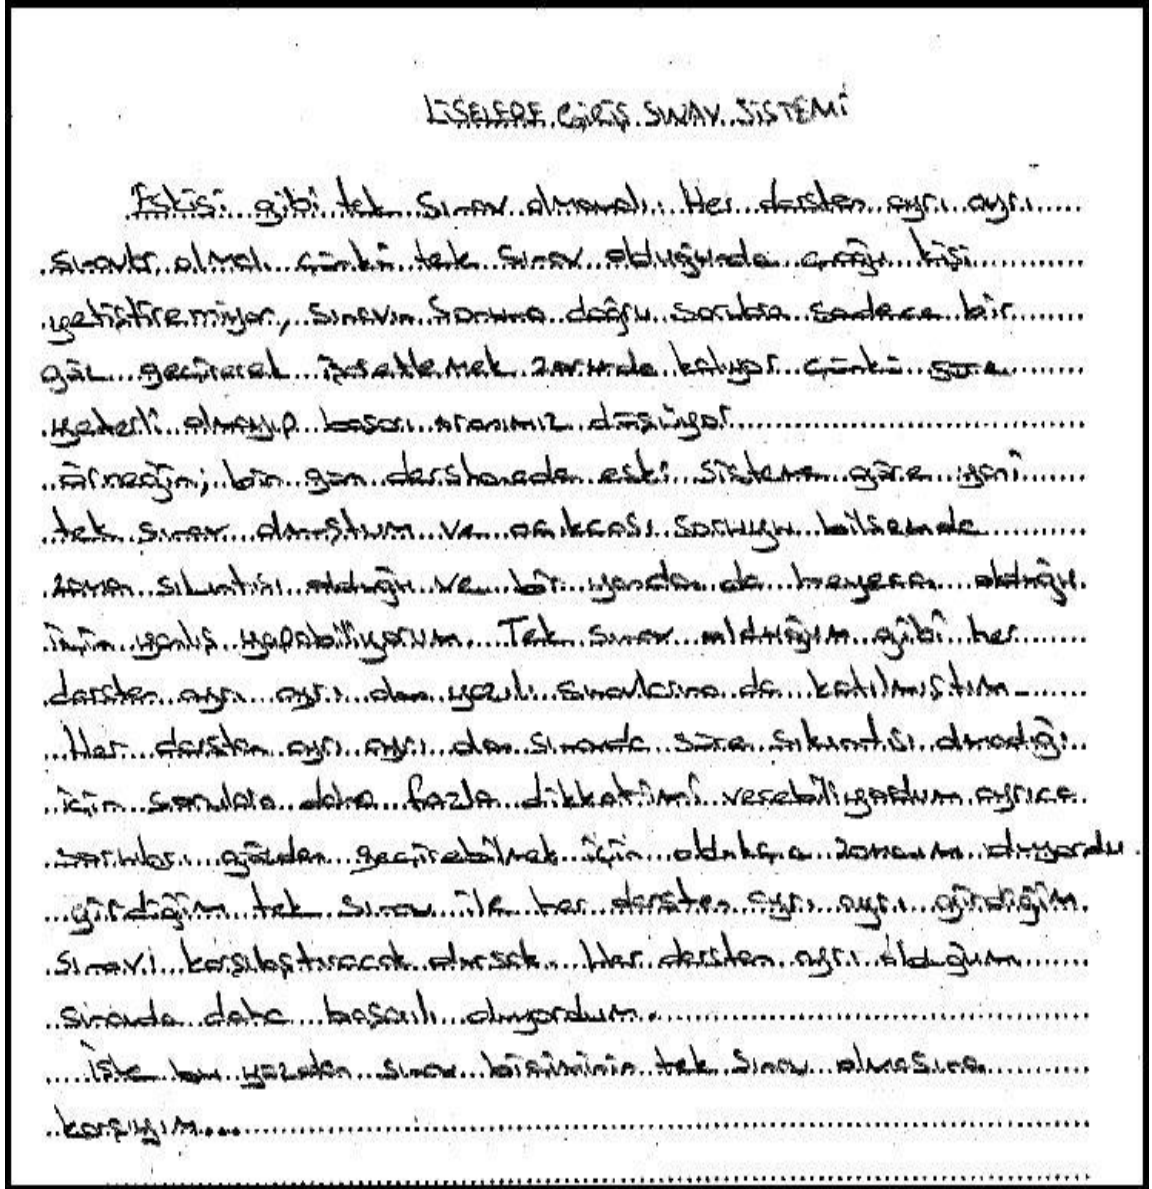 LİSELERE GİRİŞ SINAV SİSTEMİ
Eskisi gibi tek sınav olmamalı. Her dersten ayrı ayrı
sınavlar olmalı çünkü tek sınav olduğunda çoğu kişi
yetiştiremiyor, sınavın sonuna doğru sorulara sadece bir
göz geçirerek işaretlemek zorunda kalıyor çünkü süre
yeterli olmayıp başarı oranımız düşüyor.
örneğin; bir gün dershanede eski sisteme göre yani
tek sınav olmuştum ve açıkcası soruyu bilsemde
zaman sıkıntısı olduğu ve bir yandan da heyecan olduğu
için yanlış yapabiliyorum. Tek sınav olduğum gibi her
dersten ayrı ayrı olan yazılı sınavlarına da katılmıştım
Her dersten ayrı ayrı olan sınavda süre sıkıntısı olmadığı
için sorulara daha fazla dikkatimi verebiliyordum ayrıca
soruları gözden geçirebilmek için oldukça zamanım oluyordu.
girdiğim tek sınav ile her dersten ayrı ayrı girdiğim
sınavı karşılaştıracak olursak. Her dersten ayrı olduğum
sınavda daha başarılı oluyordum.
İşte bu yüzden sınav biçiminin tek sınav olmasına
karşıyım...